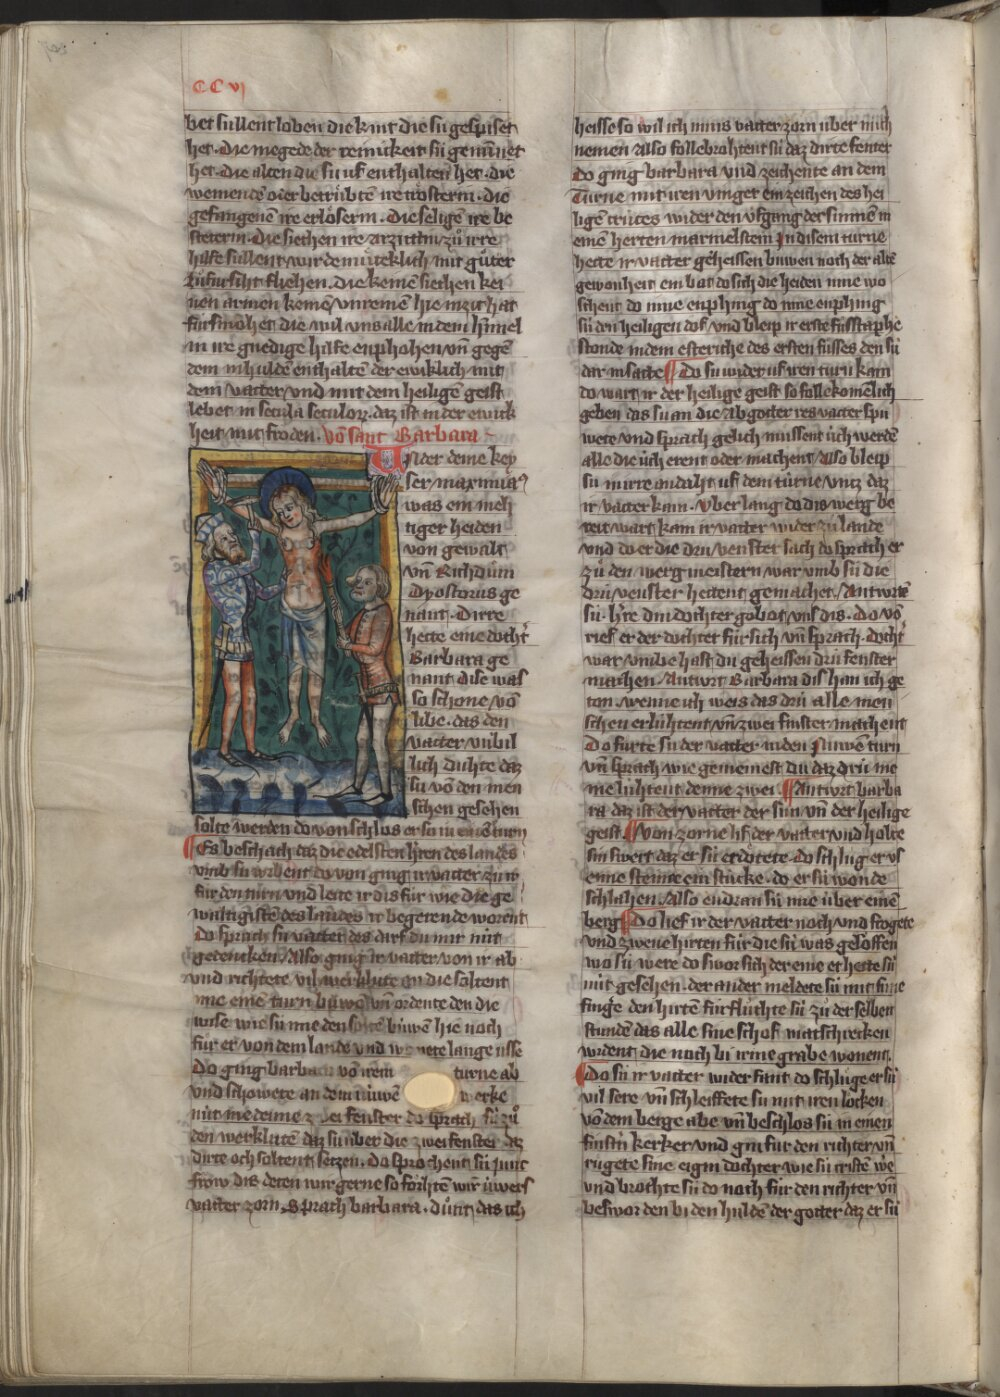 CC vj
bet sullent loben die kint die sú gespiset
het. Die megede der reinikeit sú geminnet
het. Die alten die sú uf enthalten het. die
weinendē oder betrúbtē ire trósterin. die
gefangenē ire erlóserin. Die seligē ire be
steterin. Die siechen ire arzittin zů irre
hilfe súllent wir demůteklich mit gůter
zůfúrsiht fliehen. die keinē siechen kei
nen armen keinē unreinen hie in zit hat
fúrsmohet die wil uns alle in dem himel
in ire gnedige hilfe enphohen uñ gegē
dem in hulden enthaltē der ewiklich mit
dem vatter und mit dem heiligē geist
lebet in secula seculorz. daz ist in der ewik
heit mit froden. vō sant Barbara
In der deme key
ser maximian9
was ein meh
tiger heiden
von gewalt
uñ Richdům
Dyostorus ge
nant. Dirre
hette eine docht'
Barbara ge
nant dise was
so schone vō
libe. das den
vatter unbil
lich duhte daz
su vō den men
schen gesehen
solte werden do von schlos er sú in eins turn
Es beschach daz die edelsten h'ren des landes
umb sú wrbent do von ging ir vatter zů ir
fúr den turn und leite ir dis fúr wie die ge
waltigistē des landes ir begerende worent
Do sprach sú vatter des darf du mir nút
gedencken. Also ging ir vatter von ir ab
und richtete vil werklúte an die soltent
ime einē turn buwē uñ ordente den die
wise wie sú ime den soltē buwen hie noch
fůr er von dem lande und wonete lange usse
Do ging barbara vō irem turne ab
und schowete an dem núwē werke
nút me denne zwei fenster do sprach sú zů
den werklútē daz sú úber die zwei fenster daz
dirte och soltent setzen. do sprochent sú junc
frow dis deten wir gerne so fórhtē wir úwers
vatter zorn. Sprach barbara. důnt das ich
heisse so wil ich mins vatter zorn uber mich
nemen Also follebrohtent sú daz dirte fenster
do ging barbara und zeichente an dem
Turne mit iren vinger ein zeichen des hei
ligē crútzes wider den ufgang der sunnen in
einē herten marmelstein In disem turne
hette ir vatter geheissen buwen noch der altē
gewonheit ein bat do sich die heiden inne wo
schent do inne enphing do inne enphing
sú den heiligen dof und bleip ir erste fusstaphe
stonde in dem esteriche des ersten fusses den sú
dar in satte Do sú wider uf iren turn kam
do wart ir der heilige geist so follekomēlich
geben das sú an die abgotter ires vatter spú
wete und sprach gelich mússent úch werdē
alle die úch erent oder machent Also bleip
sú in irre andaht uf dem túrne untz daz
ir vatter kam. Uber lang do dis werg be
reit wart kam ir vatter wider zů lande
und do er die drú venster sach do sprach er
zů den wergmeistern war umb sú die
drú venster hettent gemachet. Antwrtē
sú. h're din dochter gobot uns dis. Do vō
rief er der dochter fúr sich uñ sprach. docht'
war umbe hast du geheissen drú fenster
machen Antwrt Barbara dis han ich ge
ton. wenne ich weis das drú alle men
schen erlúhtent uñ zwei finster machent
Do fůrte sú der vatter in den Nuwen turn
uñ sprach wie gemeinest du daz drú me
me lúhtent denne zwei. Antwrt barba
ra daz ist der vatter der sun uñ der heilige
geist. Von zorne lief der vatter und holte
sin swert daz er sú ertótete. do schlůg er uf
einne steine ein stúcke. do er sú wonde
schlahen. Also endran sú ime úber einē
berg Do lief ir der vatter noch und frogete
und zwene hirten fúr die sú was geloffen
wo sú were do swor sich der eine er hette sú
nút gesehen. der ander meldete sú mit sime
finge. den hirtē fúrflůchte sú zů der selben
stunden das alle sine schof matschrecken
wrdent die noch bi irme grabe wonent.
Do sú ir vatter wider fant do schlůge er sú
vil sere uñ schleiffete sú mit iren locken
vō dem berge abe uñ beschlos sú in einen
finst'n kerker und gin fúr den richter uñ
rúgete sine eigin dochter wie sú cristē we
und brochte sú do noch fúr den richter uñ
beswor den bi den huldē der gotter daz er sú